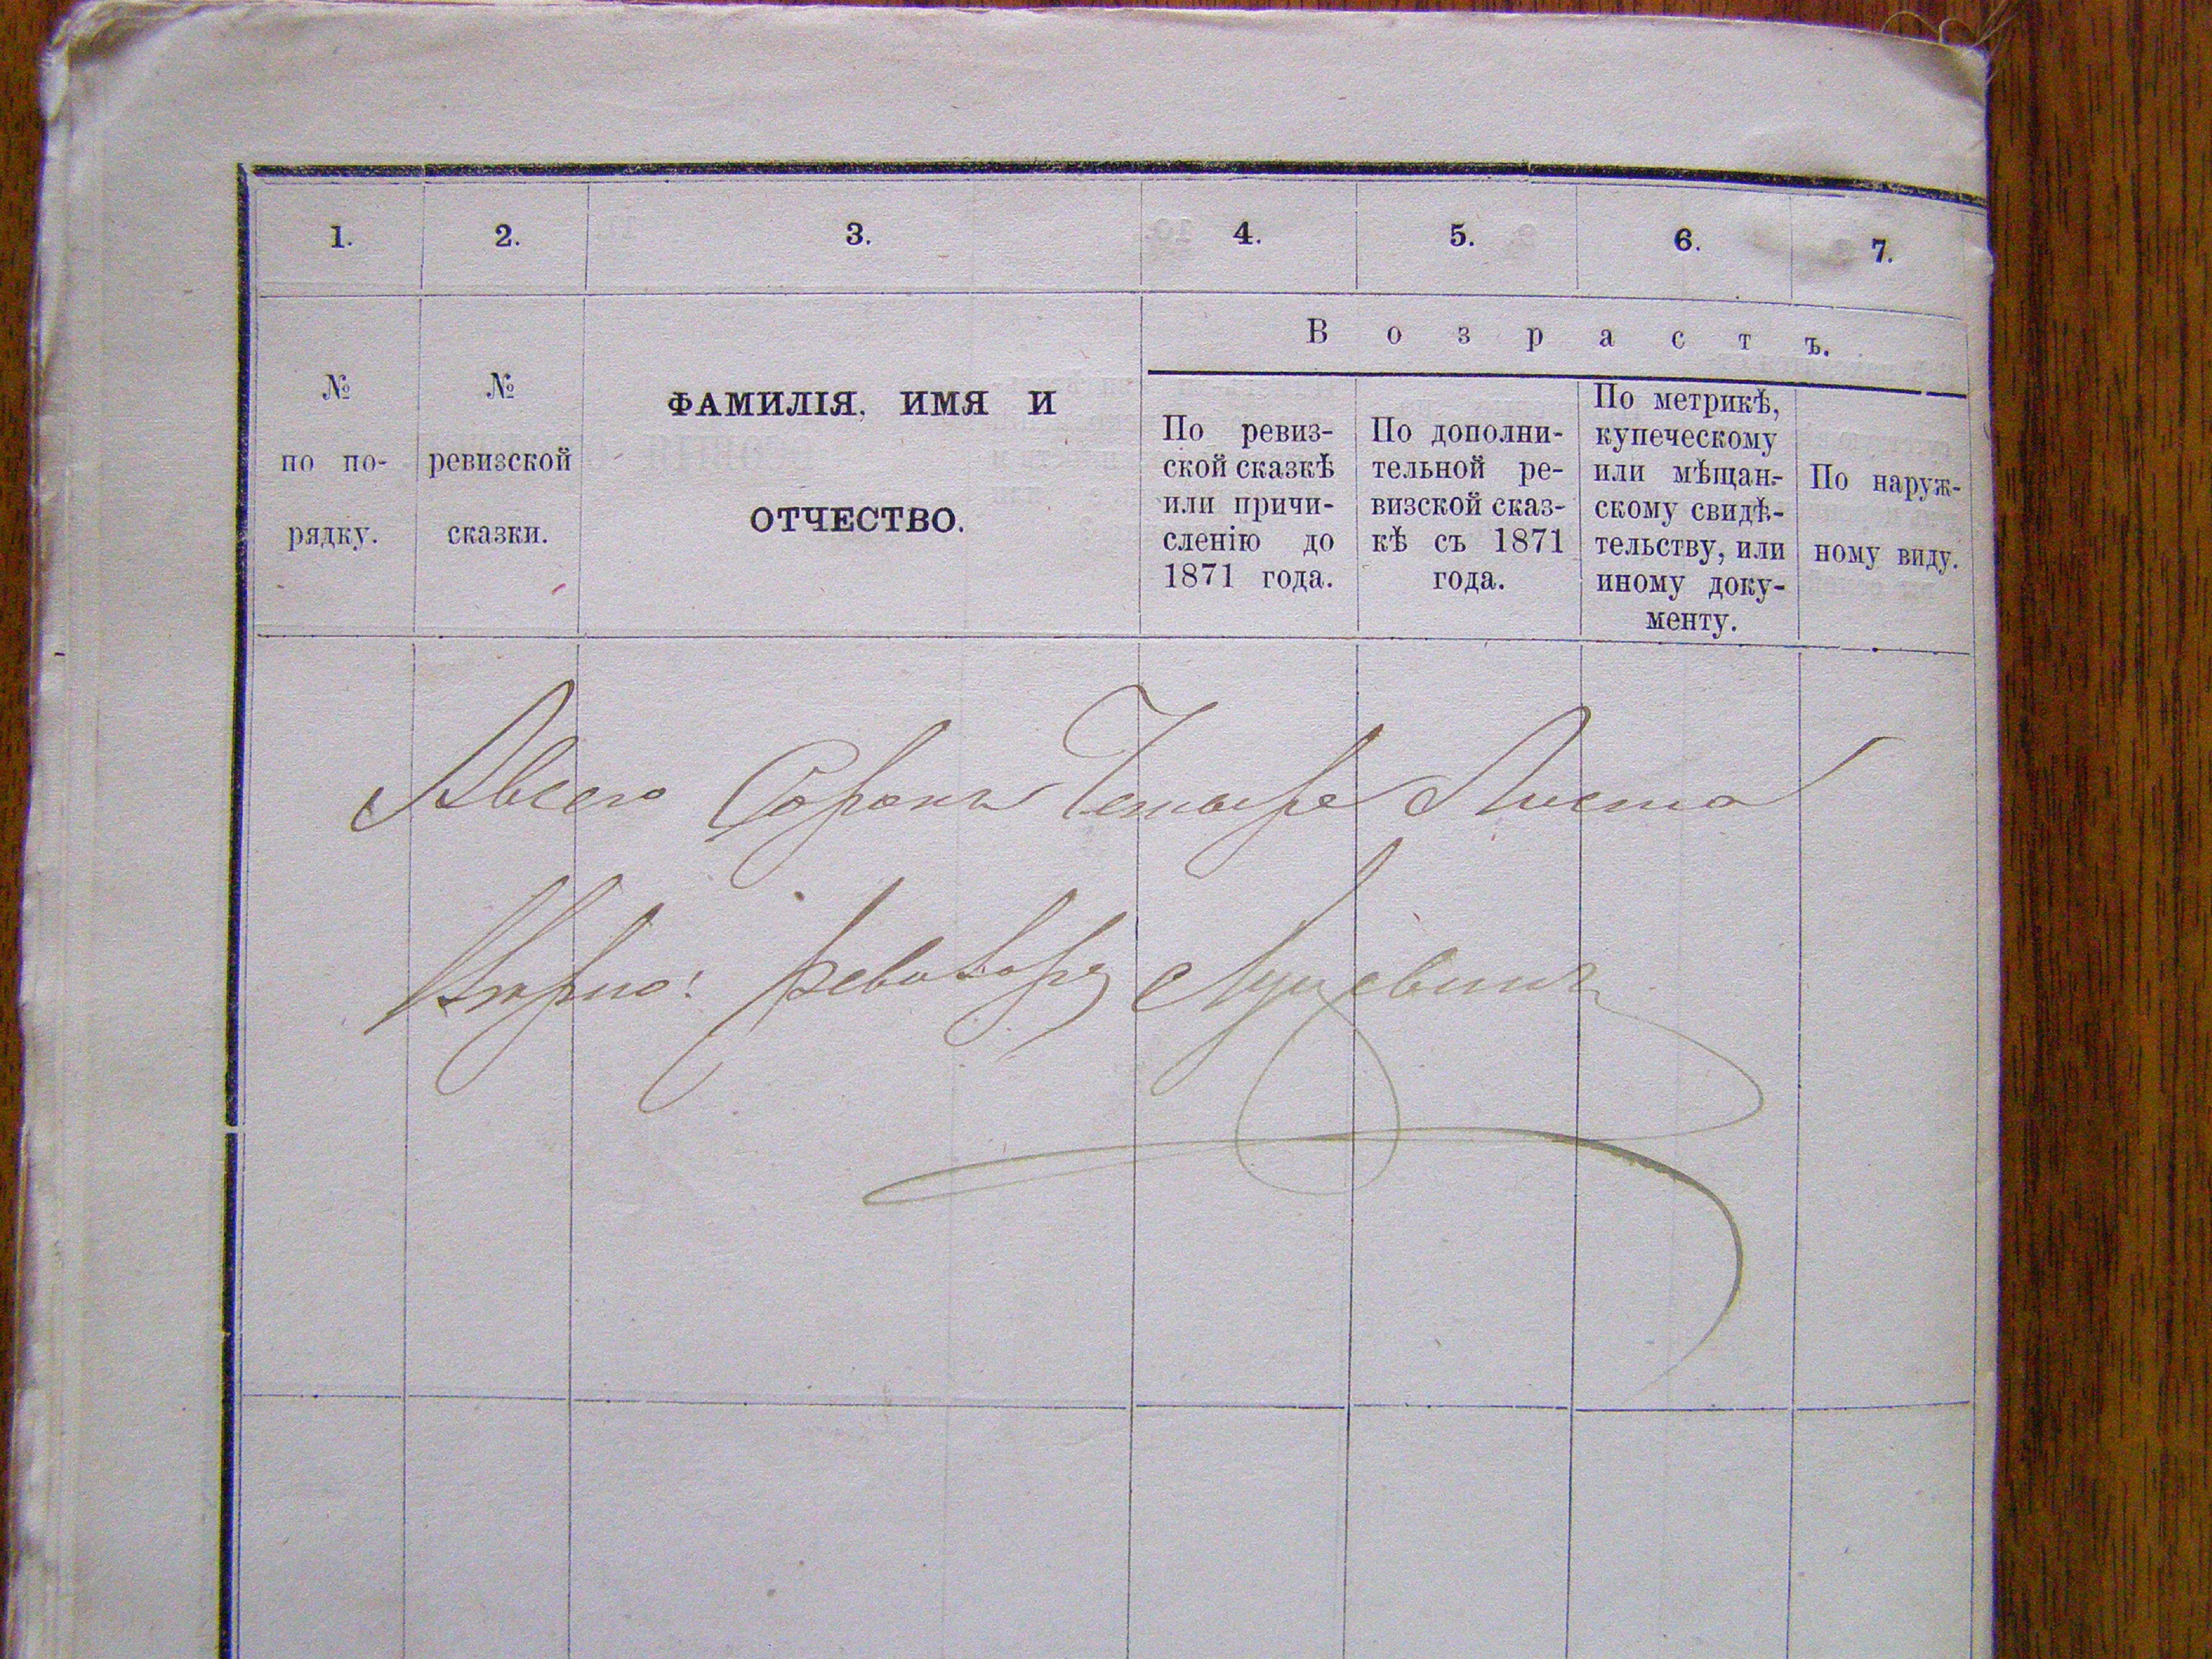 1. 2. 3. 4. 5. 6. 7.
№
по по-
рядку.
№
ревизской
сказки.
ФАМИЛІЯ, ИМЯ И
ОТЧЕСТВО.
Возрастъ.
По ревиз-
ской сказкѣ
или причи-
сленію до
1871 года.
По дополни-
тельной ре-
визской сказ-
кѣ съ 1871
года.
По метрикѣ,
купеческому
или мѣщан-
скому свидѣ-
тельству, или
иному доку-
менту.
По наруж-
ному виду.
Авсего Сорокъ Четыре Листа
Вѣрно: